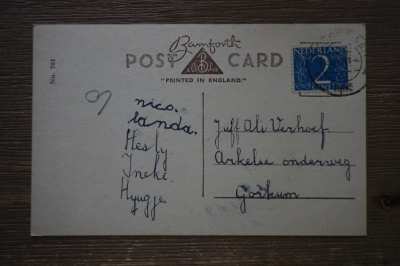 Bamforth
POST CARD
"PRINTED IN ENGLAND."
No. 701
NEDERLAND
2
nico.
landa.
Hesly
Ineke.
Juff Ali Verhoef
Arkelse onderweg
Gorkum